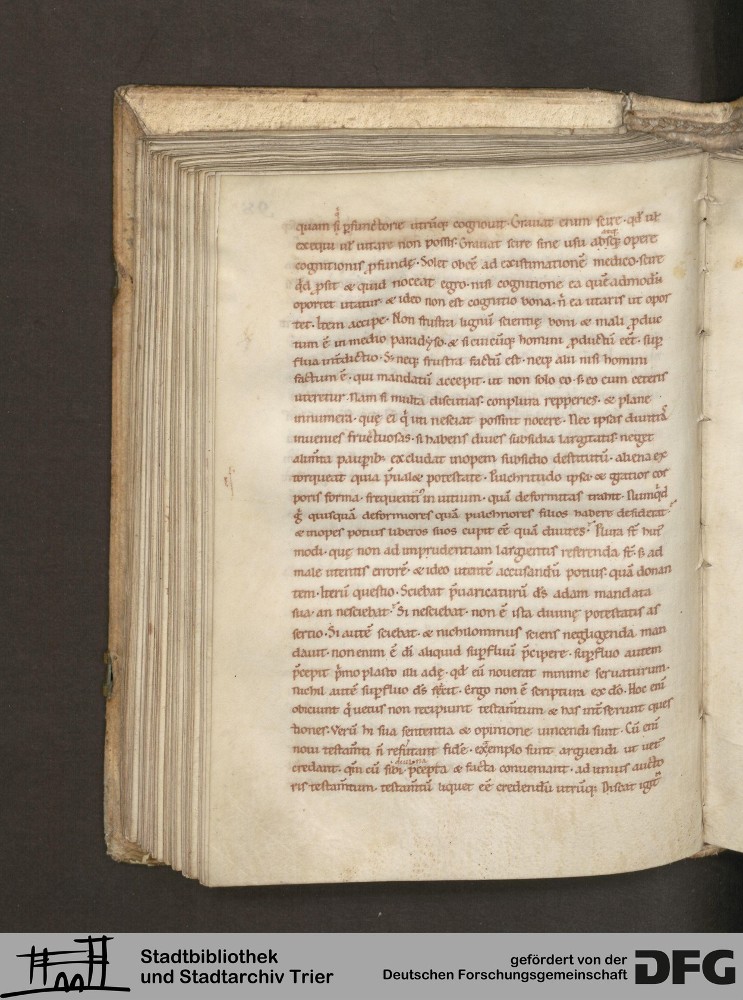 quam si ꝑfunctorie utrūq; cognouit. Grauat enim scire. qđ uł
exequi uł uitare non possis. Grauat scire sine usu absq; opere
cognitionis ꝓfundę. Solet obēē ad existimationē medico. scire
qd ꝓsit & quid noceat egro. nisi cognitione ea quēadmodū
oportet utatur. & ideo non est cognitio bona. n̄ ea utaris ut opor
tet. Item accipe. Non frustra lignū scientię boni & mali ꝓduc
tum ē in medio paradyso. & si cuicūq; homini ꝓductū eēt. sup̄
flua int̄dictio. S; neq; frustra factū est. neq; alii nisi homini
factum ē. qui mandatū accepit. ut non solo eo. s; eo cum ceteris
uteretur. Nam si multa discutias. conplura repperies. & plane
innumera. quę ei q̇ uti nesciat possint nocere. Nec ipsas diuitias
inuenies fructuosas. si habens diues subsidia largitatis. neget
alim̄ta paup̄ib; excludat inopem subsidio destitutū. aliena ex
torqueat quia p̄ualæ potestate. Pulchritudo ipsa. & gratior cor
poris forma. frequentior in uitium. quā deformitas trahit. Nunqd
g̊ quisquā deformiores quā pulchriores filios habere desiderat.
& inopes potius liberos suos cupit eē quā diuites. Plura st̄ hui
modi. quę non ad inprudentiam largientis referenda st̄. s; ad
male utentis errorē. & ideo utentē accusandū potius. quā donan
tem. Iterū questio. Sciebat p̄uaricaturū d̄s adam mandata
sua. an nesciebat. Si nesciebat. non ē ista diuinę potestatis as
sertio. Si autē sciebat. & nichilominus sciens negligenda man
dauit. non enim ē dī aliquid sup̄fluū p̄cipere. sup̄fluo autem
p̄cepit p̄moplasto illi adę. qđ eū nouerat minime seruaturum.
nichil autē sup̄fluo d̄s fecit. Ergo non ē scriptura ex dō. Hoc enī
obiciunt q̇ uetus non recipiunt testam̄tum & has int̄serunt ques
tiones. Verū hi sua sententia & opinione uincendi sunt. Cū enī
noui testam̄ti n̄ refutant fidē. exemplo sunt arguendi ut uet̄i
credant. qm̄ cū sibi diuina p̄cepta & facta conueniant. ad unius aucto
ris testam̄tum. testam̄tū liquet eē credendū utrūq;. Discat igit̄
Stadtbibliothek
und Stadtarchiv Trier
gefördert von der
Deutschen Forschungsgemeinschaft
DFG